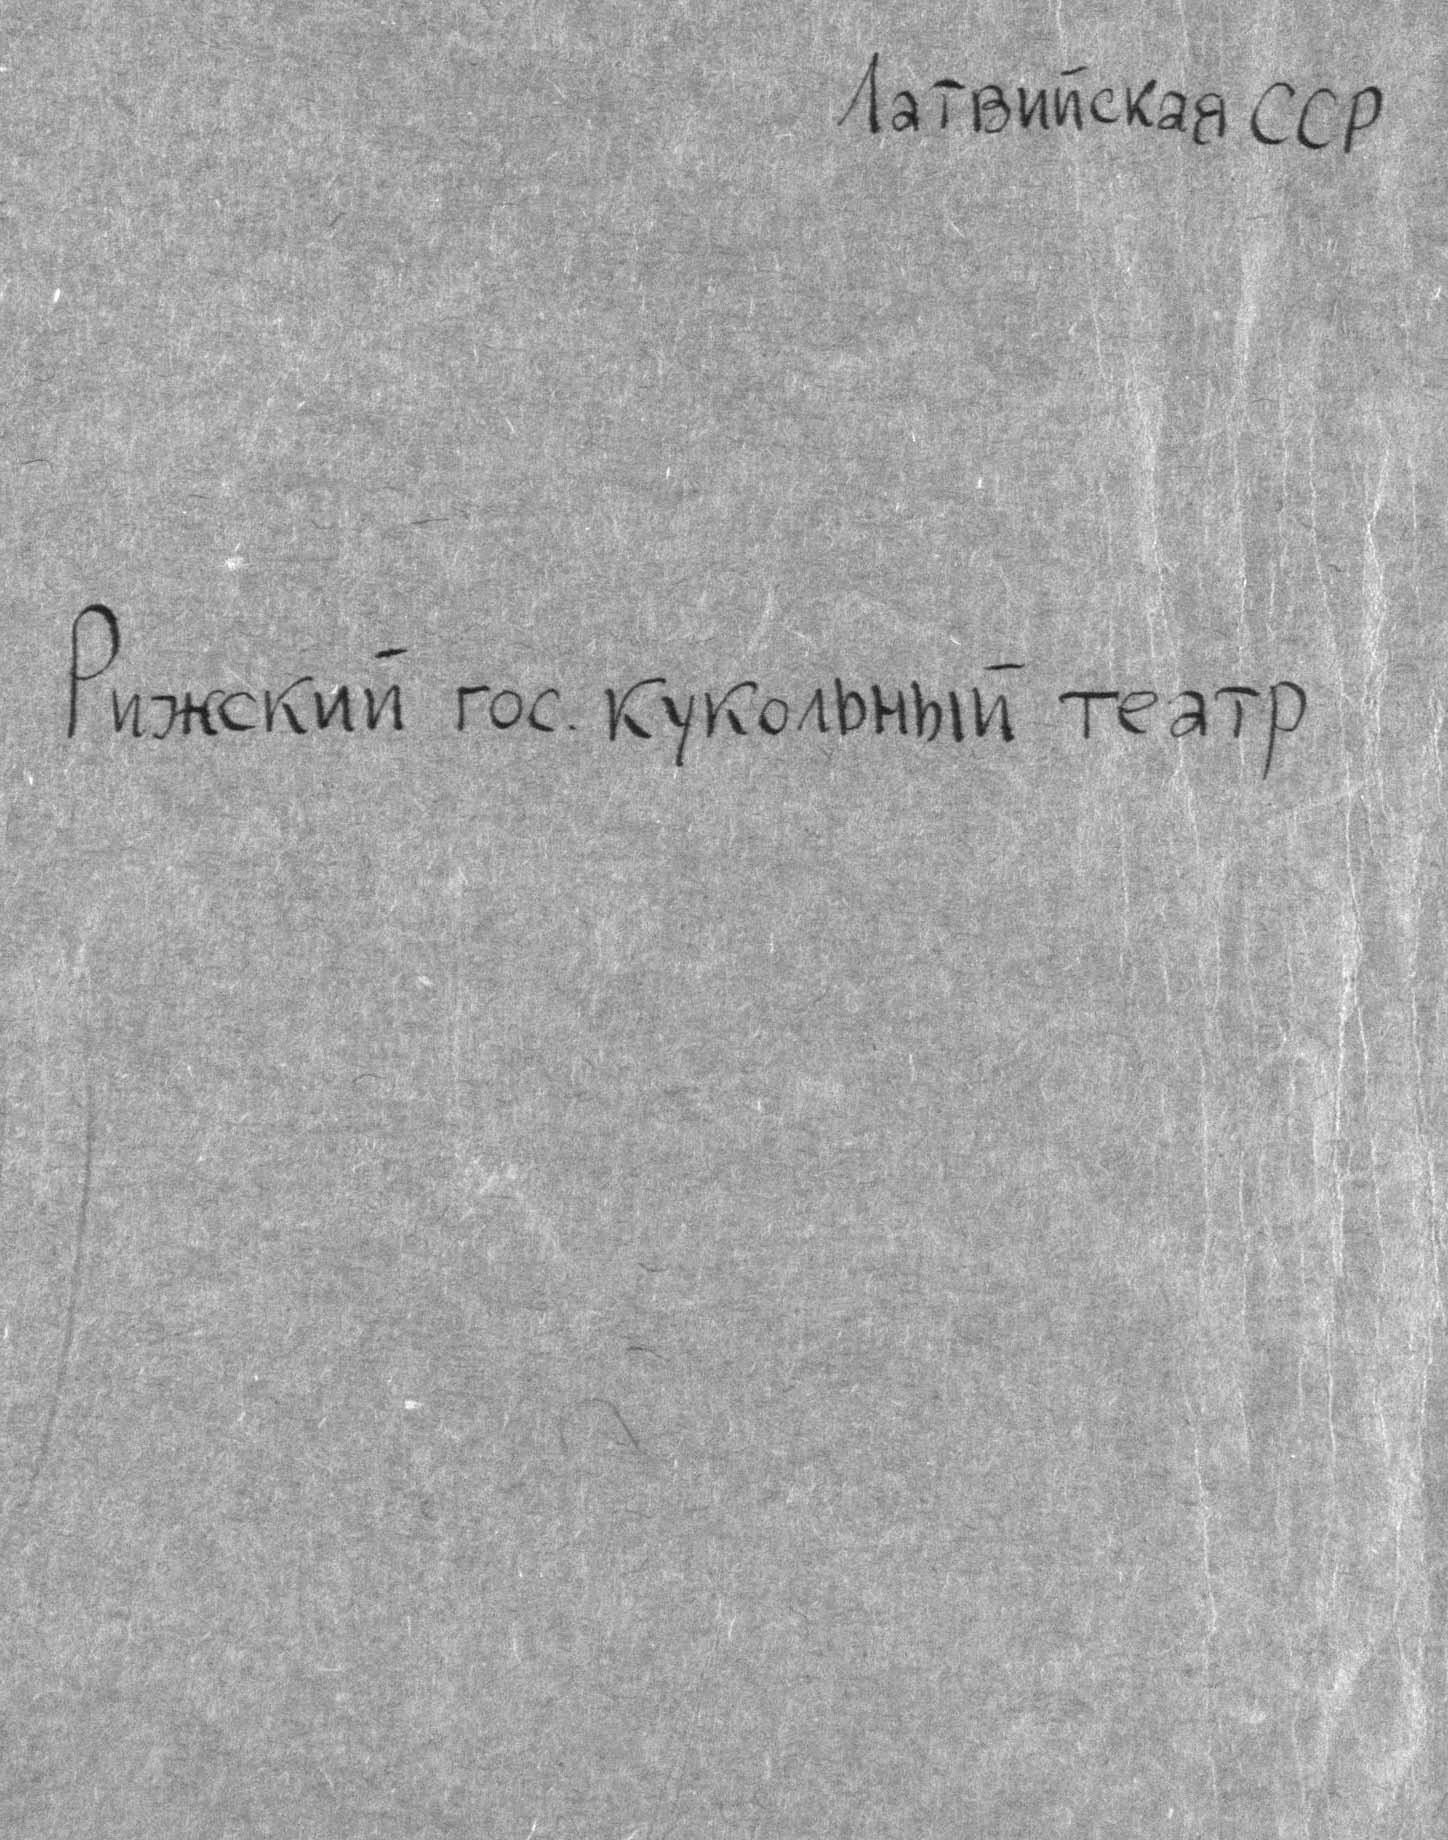 Латвийская ССР
Рижский гос. кукольный театр